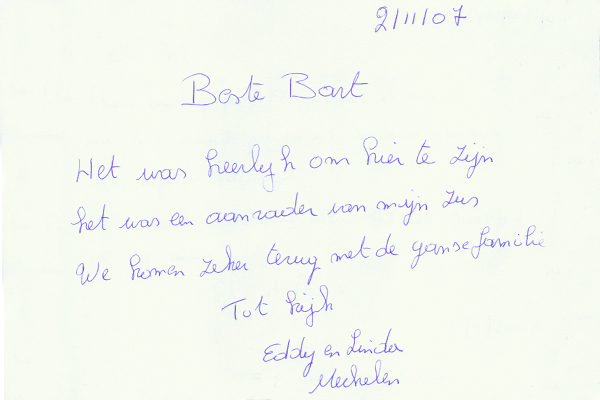 2/11/07
Beste Bart
Het was heerlijk om hier te zijn
het was een aanrader van mijn zus
We komen zeker terug met de ganse familie
Tot kijk
Eddy en Linda
Mechelen